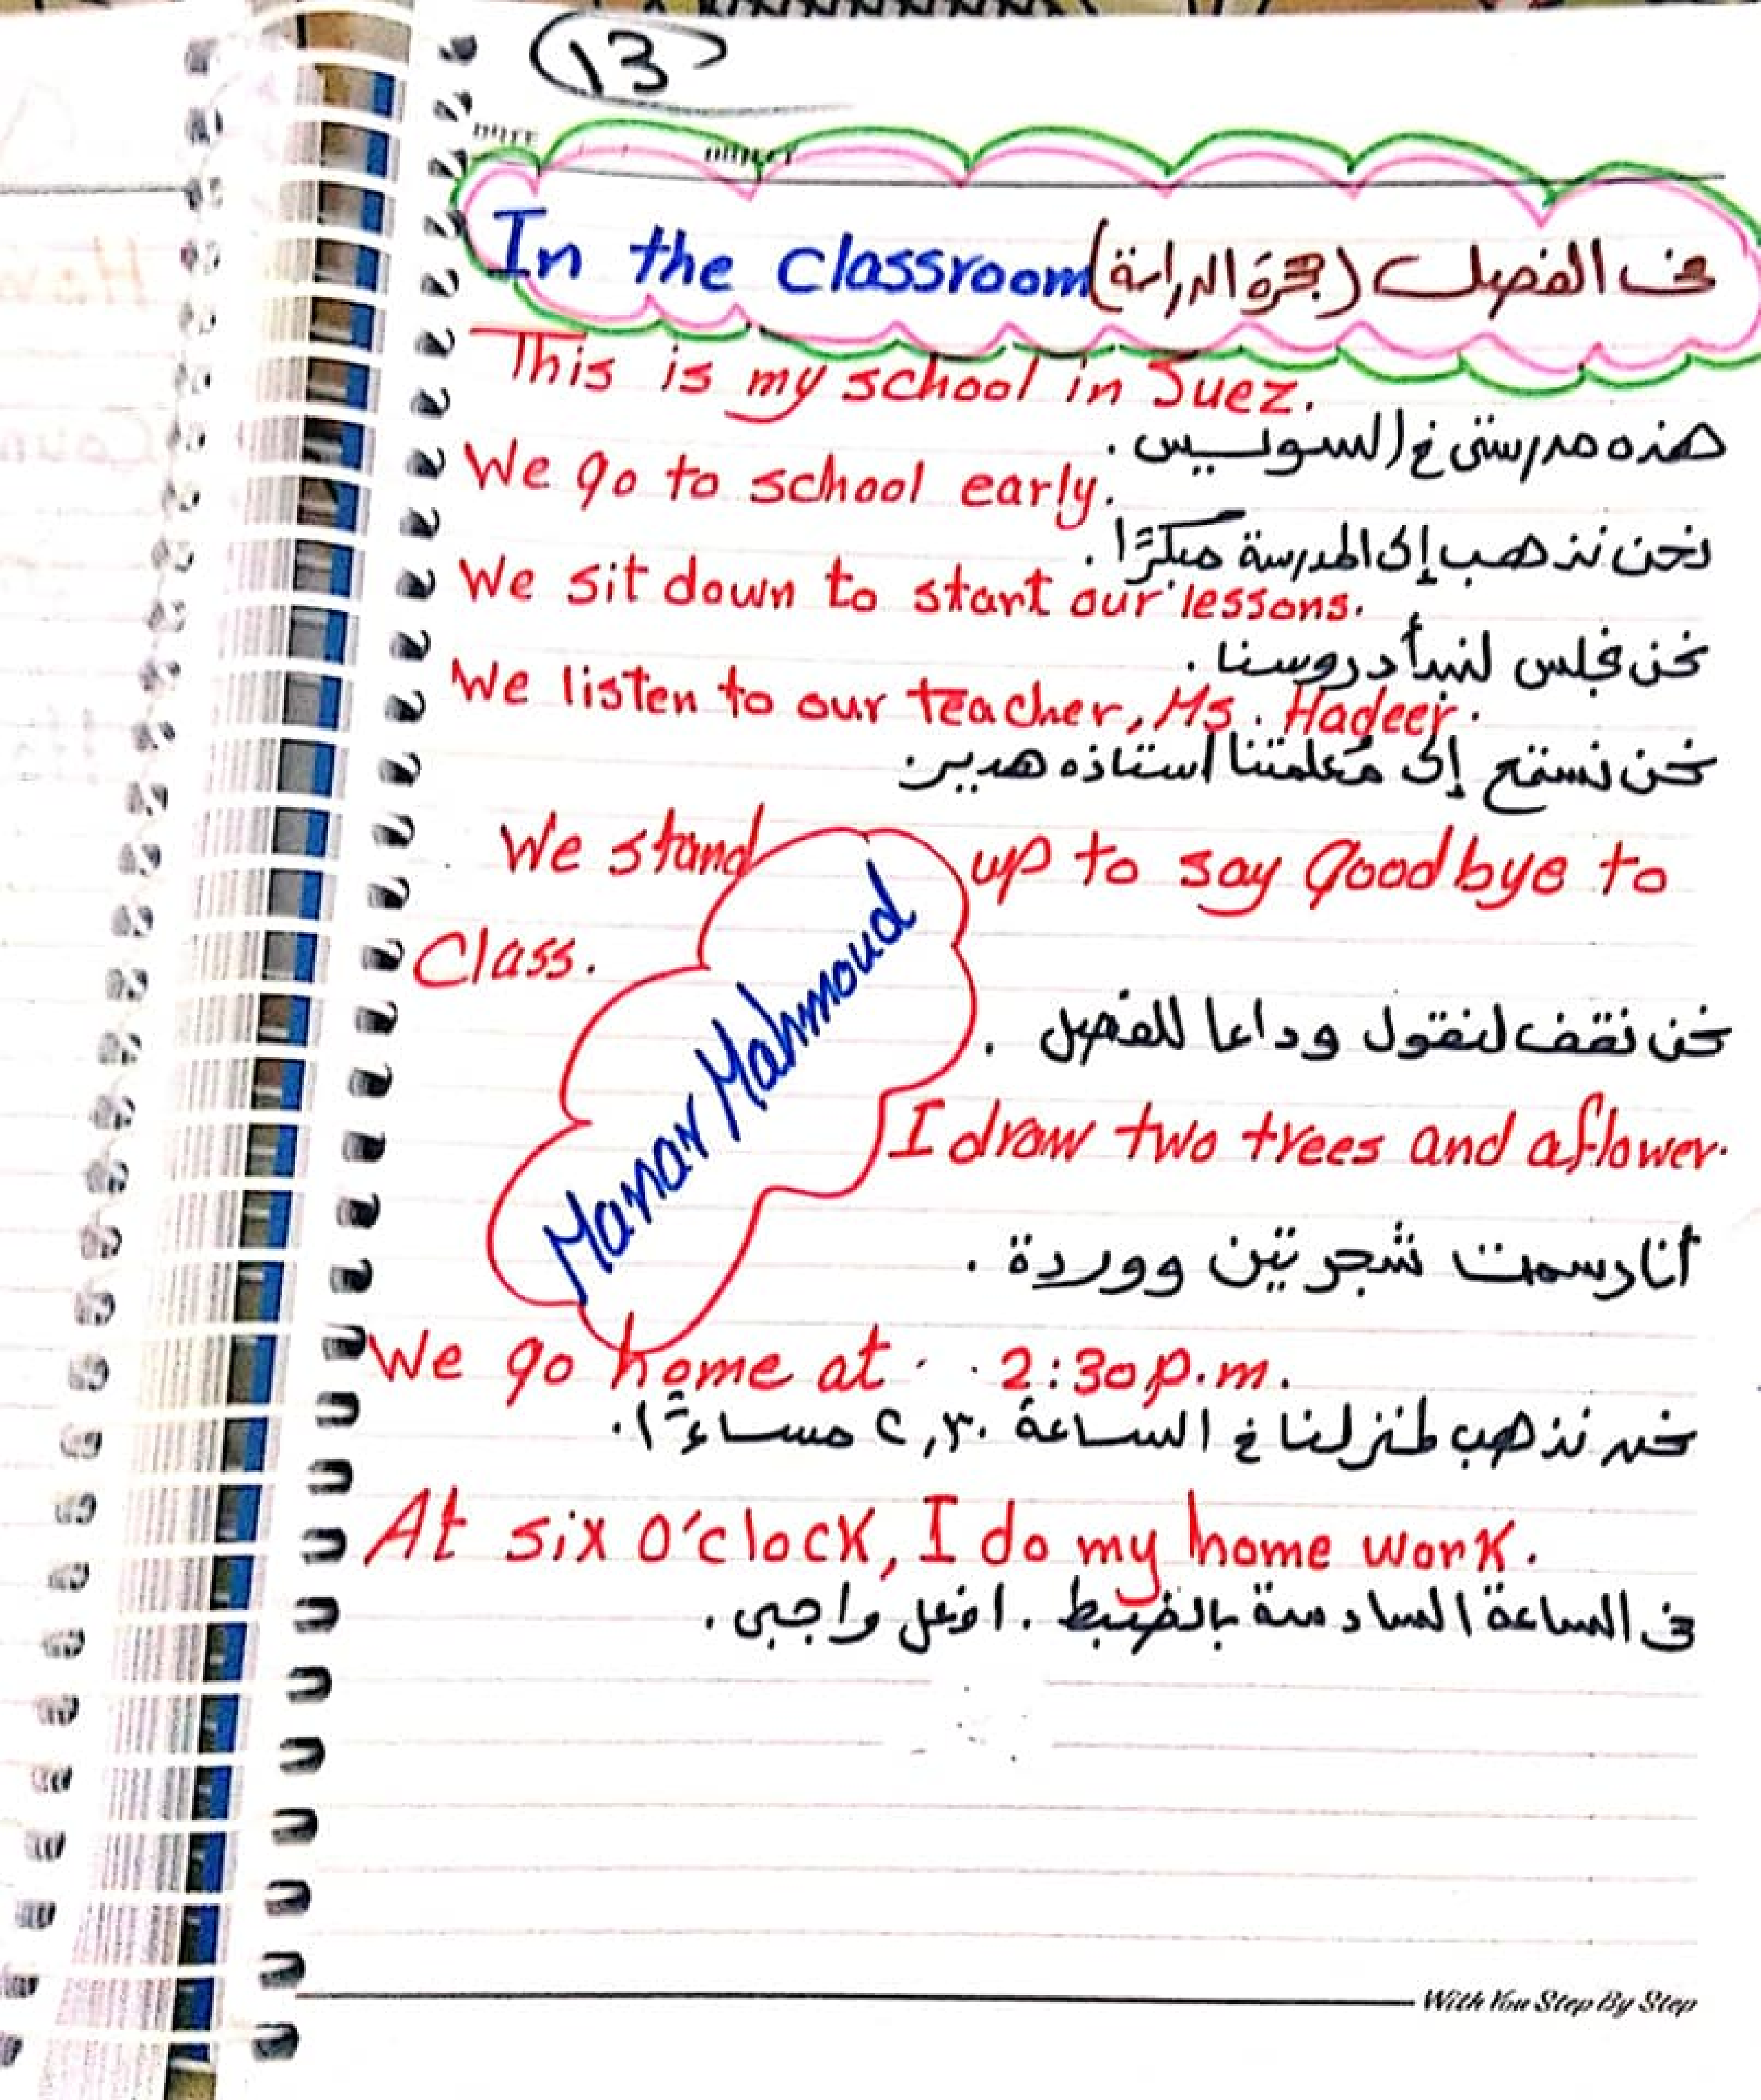 13
In the classroom (حجرة الدراسة) فى الفصل
This is my school in Suez.
هذه مدرستى فى السويس.
We go to school early.
نحن نذهب إلى المدرسة مبكرًا.
We sit down to start our lessons.
نحن نجلس لنبدأ دروسنا.
We listen to our teacher, Ms. Hadeer.
نحن نستمع إلى مُعلمتنا استاذه هدير.
We stand up to say Goodbye to
Class.
Manar Mahmoud
نحن نقف لنقول وداعا للفصل.
I draw two trees and a flower.
أنا رسمت شجرتين ووردة.
We go home at 2:30 p.m.
نحن نذهب لمنزلنا فى الساعة ٢,٣٠ مساءًا.
At six o'clock, I do my home work.
فى الساعة السادسة بالضبط. افعل واجبى.
With You Step By Step